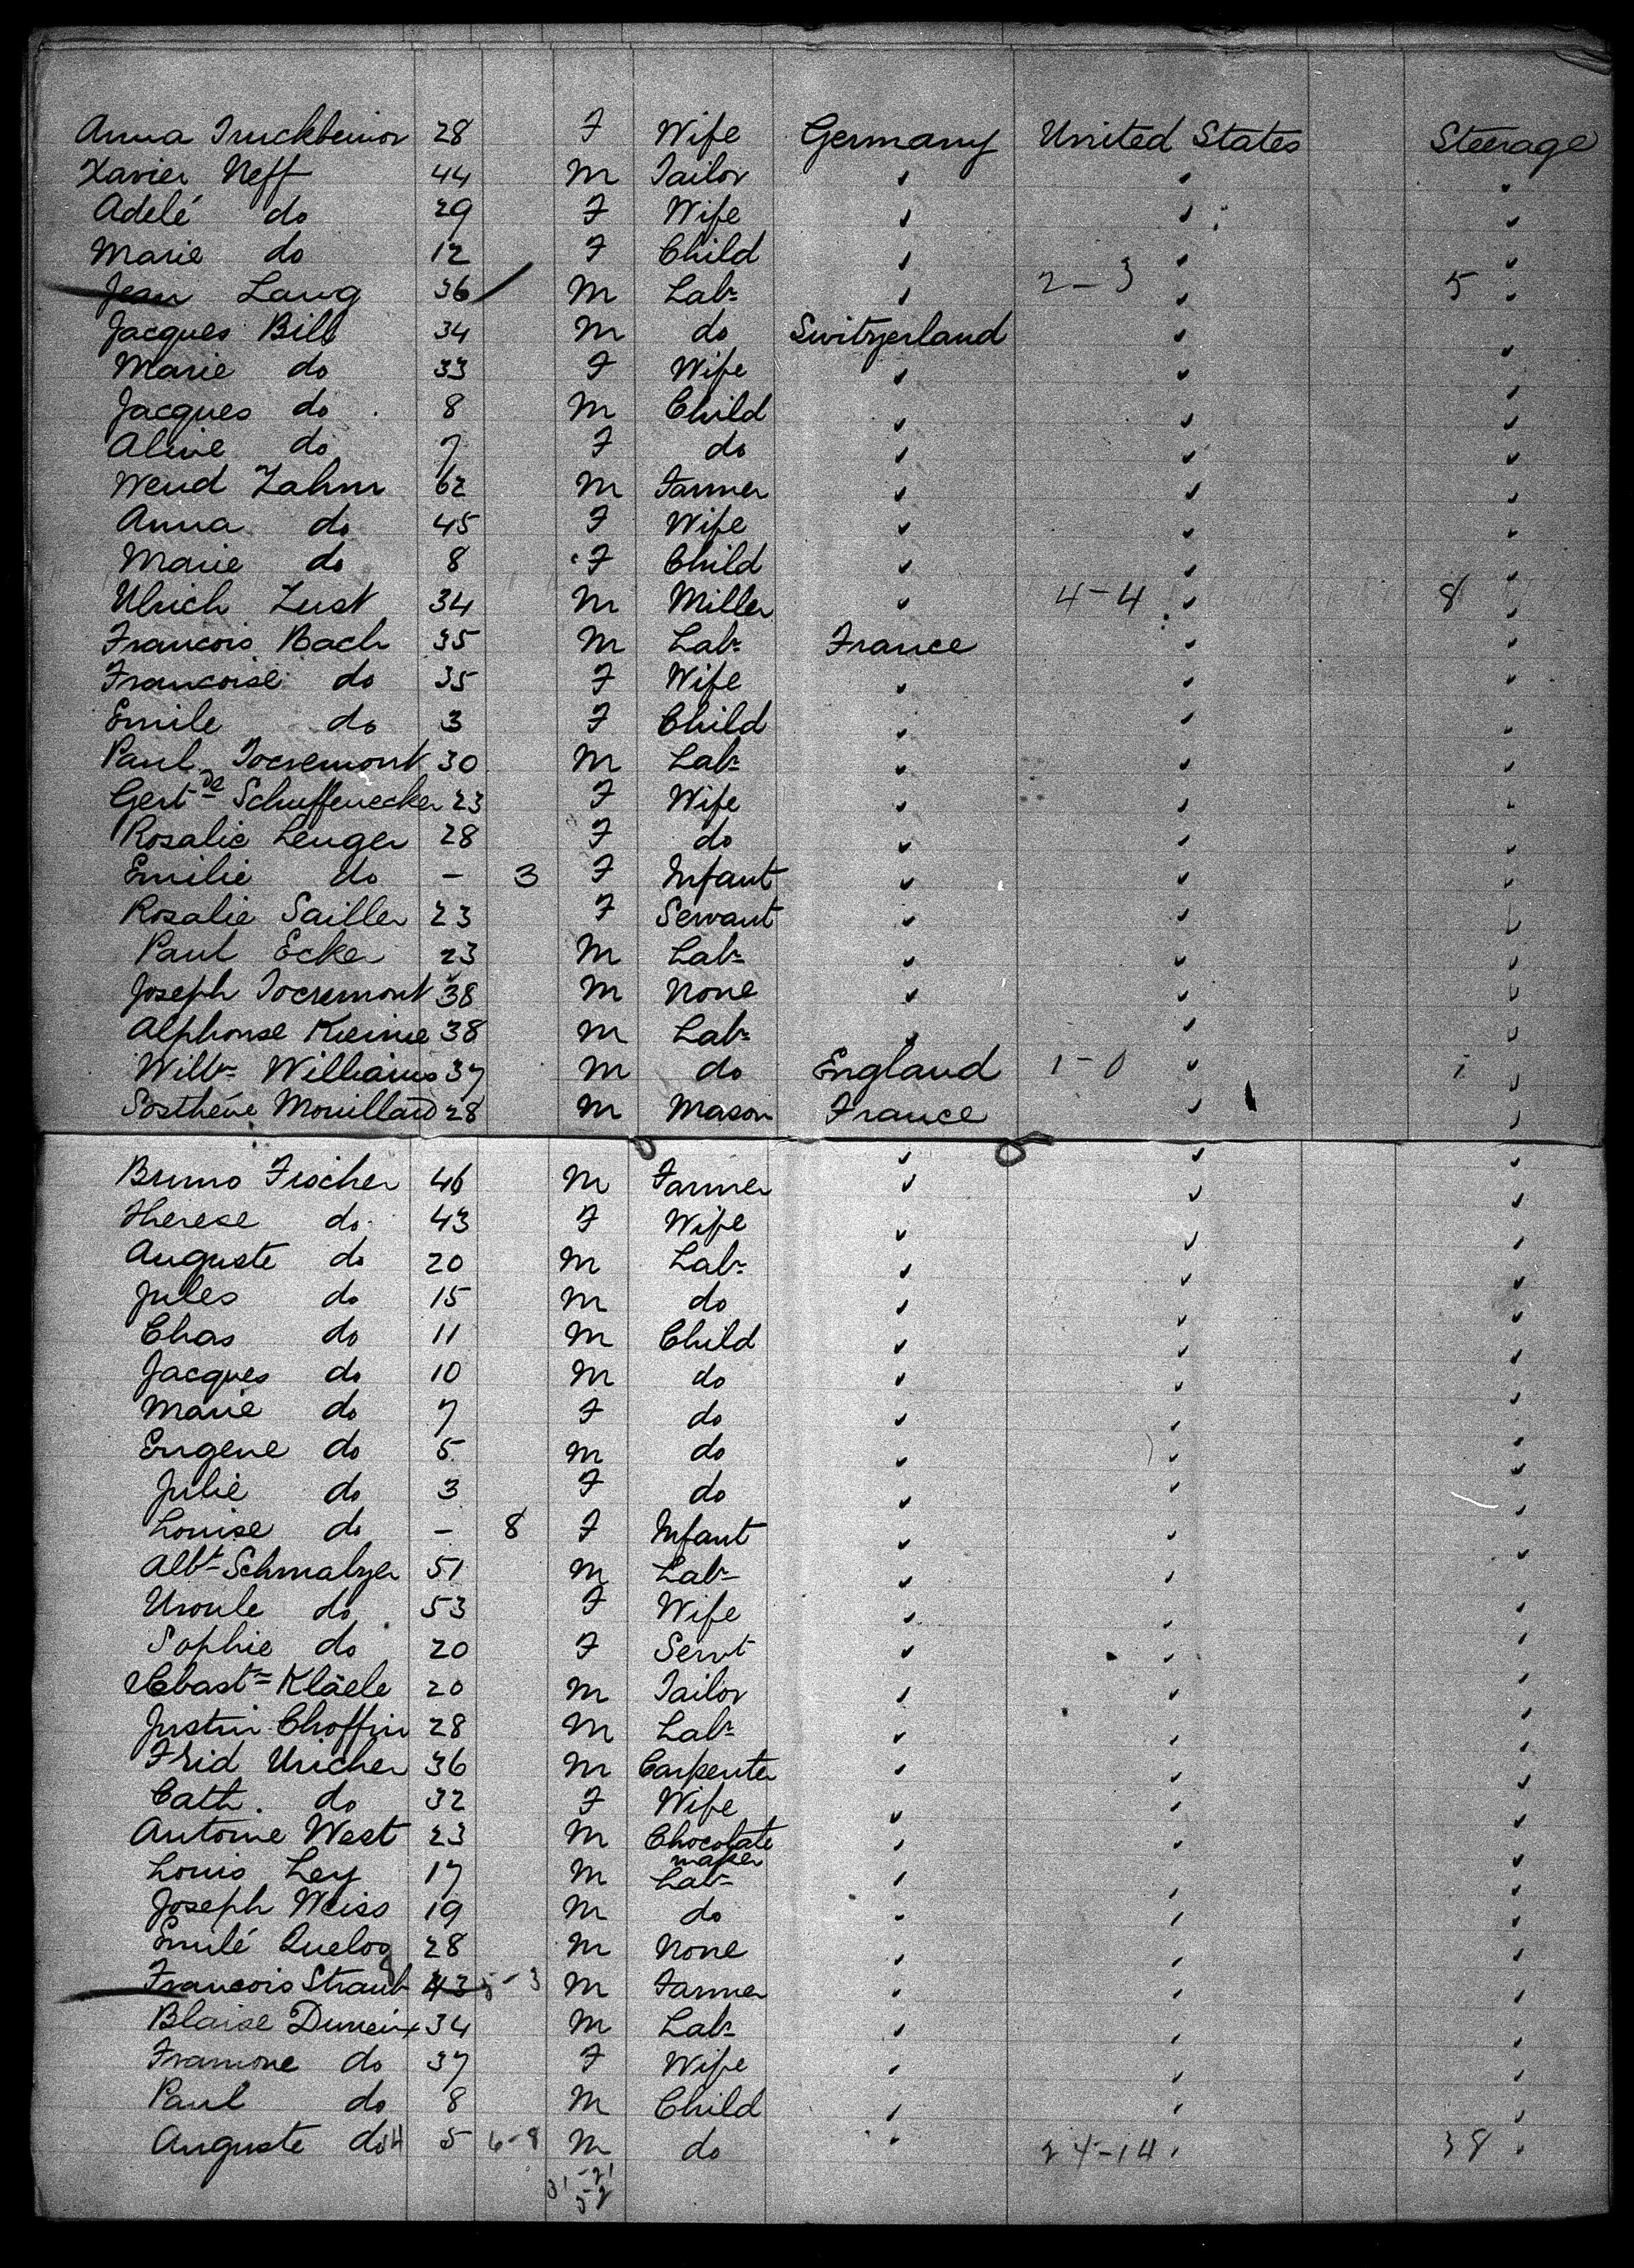 Anna Truckbeinor 28 F Wife Germany United States Steerage
Xavier Neff 44 M Tailor ✓ ✓ ✓
Adelé do 29 F Wife ✓ ✓ ✓
Marie do 12 F Child ✓ ✓ ✓
Jean Laug 36 M Labr ✓ 2-3 ✓ 5 ✓
Jacques Bill 34 M do Switzerland ✓ ✓
Marie do 33 F Wife ✓ ✓ ✓
Jacques do 8 M Child ✓ ✓ ✓
Aline do 7 F do ✓ ✓ ✓
Wend Zahm 62 M Farmer ✓ ✓ ✓
Anna do 45 F Wife ✓ ✓ ✓
Marie do 8 F Child ✓ ✓ ✓
Ulrich Zust 34 M Miller ✓ 4-4 ✓ 8 ✓
Francois Bach 35 M Labr France ✓ ✓
Francoise do 35 F Wife ✓ ✓ ✓
Emile do 3 F Child ✓ ✓ ✓
Paul Jocremont 30 M Labr ✓ ✓ ✓
Gertde Schuffenecker 23 F Wife ✓ ✓ ✓
Rosalie Lenger 28 F do ✓ ✓ ✓
Emilie do - 3 F Infant ✓ ✓ ✓
Rosalie Sailler 23 F Servant ✓ ✓ ✓
Paul Ecker 23 M Labr ✓ ✓ ✓
Joseph Jocremont 38 M None ✓ ✓ ✓
Alphonse 38 M Labr ✓ ✓ ✓
Willm Williams 37 M do England 1-0 ✓ 1 ✓
Sosthéne Mouillard 28 M Mason France ✓ ✓
Bruno Fischer 46 M Farmer ✓ ✓ ✓
Therese do 43 F Wife ✓ ✓ ✓
Auguste do 20 M Labr ✓ ✓ ✓
Jules do 15 M do ✓ ✓ ✓
Chas do 11 M Child ✓ ✓ ✓
Jacques do 10 M do ✓ ✓ ✓
Marie do 7 F do ✓ ✓ ✓
Eugene do 5 M do ✓ ✓ ✓
Julie do 3 F do ✓ ✓ ✓
Louise do - 8 F Infant ✓ ✓ ✓
Albt Schmalzer 51 M Labr ✓ ✓ ✓
Ursule do 53 F Wife ✓ ✓ ✓
Sophie do 20 F Servt ✓ ✓ ✓
Kläele 20 M Tailor ✓ ✓ ✓
Justin Choffin 28 M Labr ✓ ✓ ✓
Fried Uricher 36 M Carpenter ✓ ✓ ✓
Cath. do 32 F Wife ✓ ✓ ✓
Antoine West 23 M Chocolate maker ✓ ✓ ✓
Louis Ley 17 M Labr ✓ ✓ ✓
Joseph Weiss 19 M do ✓ ✓ ✓
Emilé Queloz 28 M None ✓ ✓ ✓
Francois Straub 43 5-3 M Farmer ✓ ✓ ✓
Blaise 34 M Labr ✓ ✓ ✓
do 37 F Wife ✓ ✓ ✓
Paul do 8 M Child ✓ ✓ ✓
Auguste do 14 5 6-8 M do ✓ 24-14 ✓ 38 ✓
31-21
52